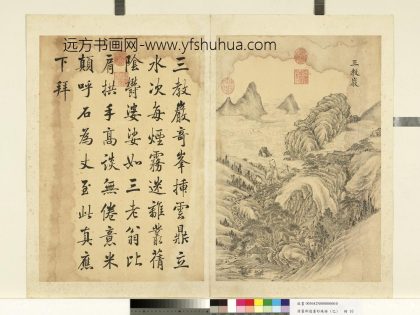 远方书画网-www.yfshuhua.com
三教巖
三教巖奇峯插雲鼎立
水次每煙霧迷離叢蒨
陰鬱婆娑如三老翁比
肩拱手高談無倦意米
顛呼石為丈至此真應
下拜